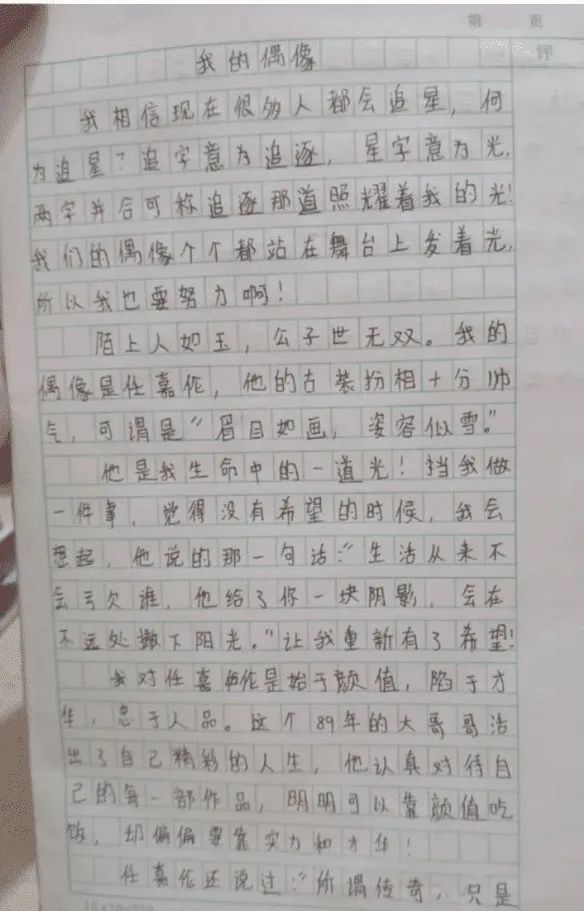 第 页
评
我的偶像
我相信现在很多人都会追星，何
为追星？追字意为追逐，星字意为光，
两字并合可称追逐那道照耀着我的光！
我们的偶像个个都站在舞台上发着光，
所以我也要努力啊！
陌上人如玉，公子世无双。我的
偶像是任嘉伦，他的古装扮相十分帅
气，可谓是“眉目如画，姿容似雪。”
他是我生命中的一道光！挡我做
一件事，觉得没有希望的时候，我会
想起，他说的那一句话：“生活从来不
会亏欠谁，他给了你一块阴影，会在
不远处撒下阳光。”让我重新有了希望！
我对任嘉伦是始于颜值，陷于才
华，忠于人品。这个89年的大哥哥活
出了自己精彩的人生，他认真对待自
己的每一部作品，明明可以靠颜值吃
饭，却偏偏要靠实力和才华！
任嘉伦还说过：“所谓传奇，只是